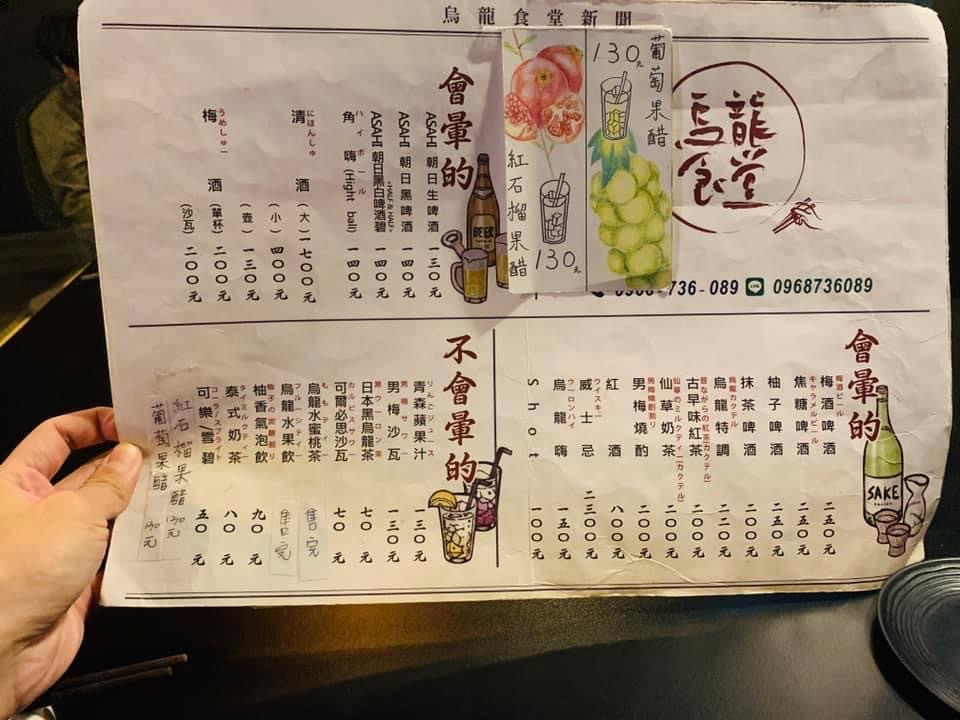 烏龍食堂新聞
烏龍食堂
736-089 0968736089
葡萄果醋
130元
紅石榴果醋
130元
會暈的
ASAHI 朝日生啤酒 一三〇元
ASAHI 朝日黑啤酒 一四〇元
ASAHI 朝日黑白啤酒碧 一四〇元
ハイボール
角嗨(Hight ball) 一四〇元
にほんしゅ
清酒 (大) 一七〇〇元
(小) 四〇〇元
(壺) 一三〇元
うめしゅー
梅酒 (單杯) 二〇〇元
(沙瓦) 二〇〇元
會暈的
梅酒ビール
梅酒啤酒 二五〇元
キャラメルビール
焦糖啤酒 二五〇元
柚子啤酒 二五〇元
抹茶啤酒 二〇〇元
烏龍カクテル
烏龍特調 二二〇元
昔ながらの紅茶(カクテル)
古早味紅茶 二〇〇元
仙草のミルクティー(カクテル)
仙草奶茶 二〇〇元
男梅焼酎割り
男梅燒酌 二〇〇元
紅酒 八〇〇元
ウイスキー
威士忌 二三〇〇元
ウーロンハイ
烏龍嗨 一五〇元
Shot 一〇〇元
不會暈的
りんごジュース
青森蘋果汁 一三〇元
男梅サワー
男梅沙瓦 一三〇元
黒ウーロン茶
日本黑烏龍茶 七〇元
カルピスサワー
可爾必思沙瓦 七〇元
ももティー
烏龍水蜜桃茶 售完
フルーツティー
烏龍水果飲 售完
柚子の炭酸割り
柚香氣泡飲 九〇元
タイミルクティー
泰式奶茶 八〇元
コーラ/スプライト
可樂/雪碧 五〇元
紅石榴果醋 130元
葡萄果醋 130元
BEER
SAKE